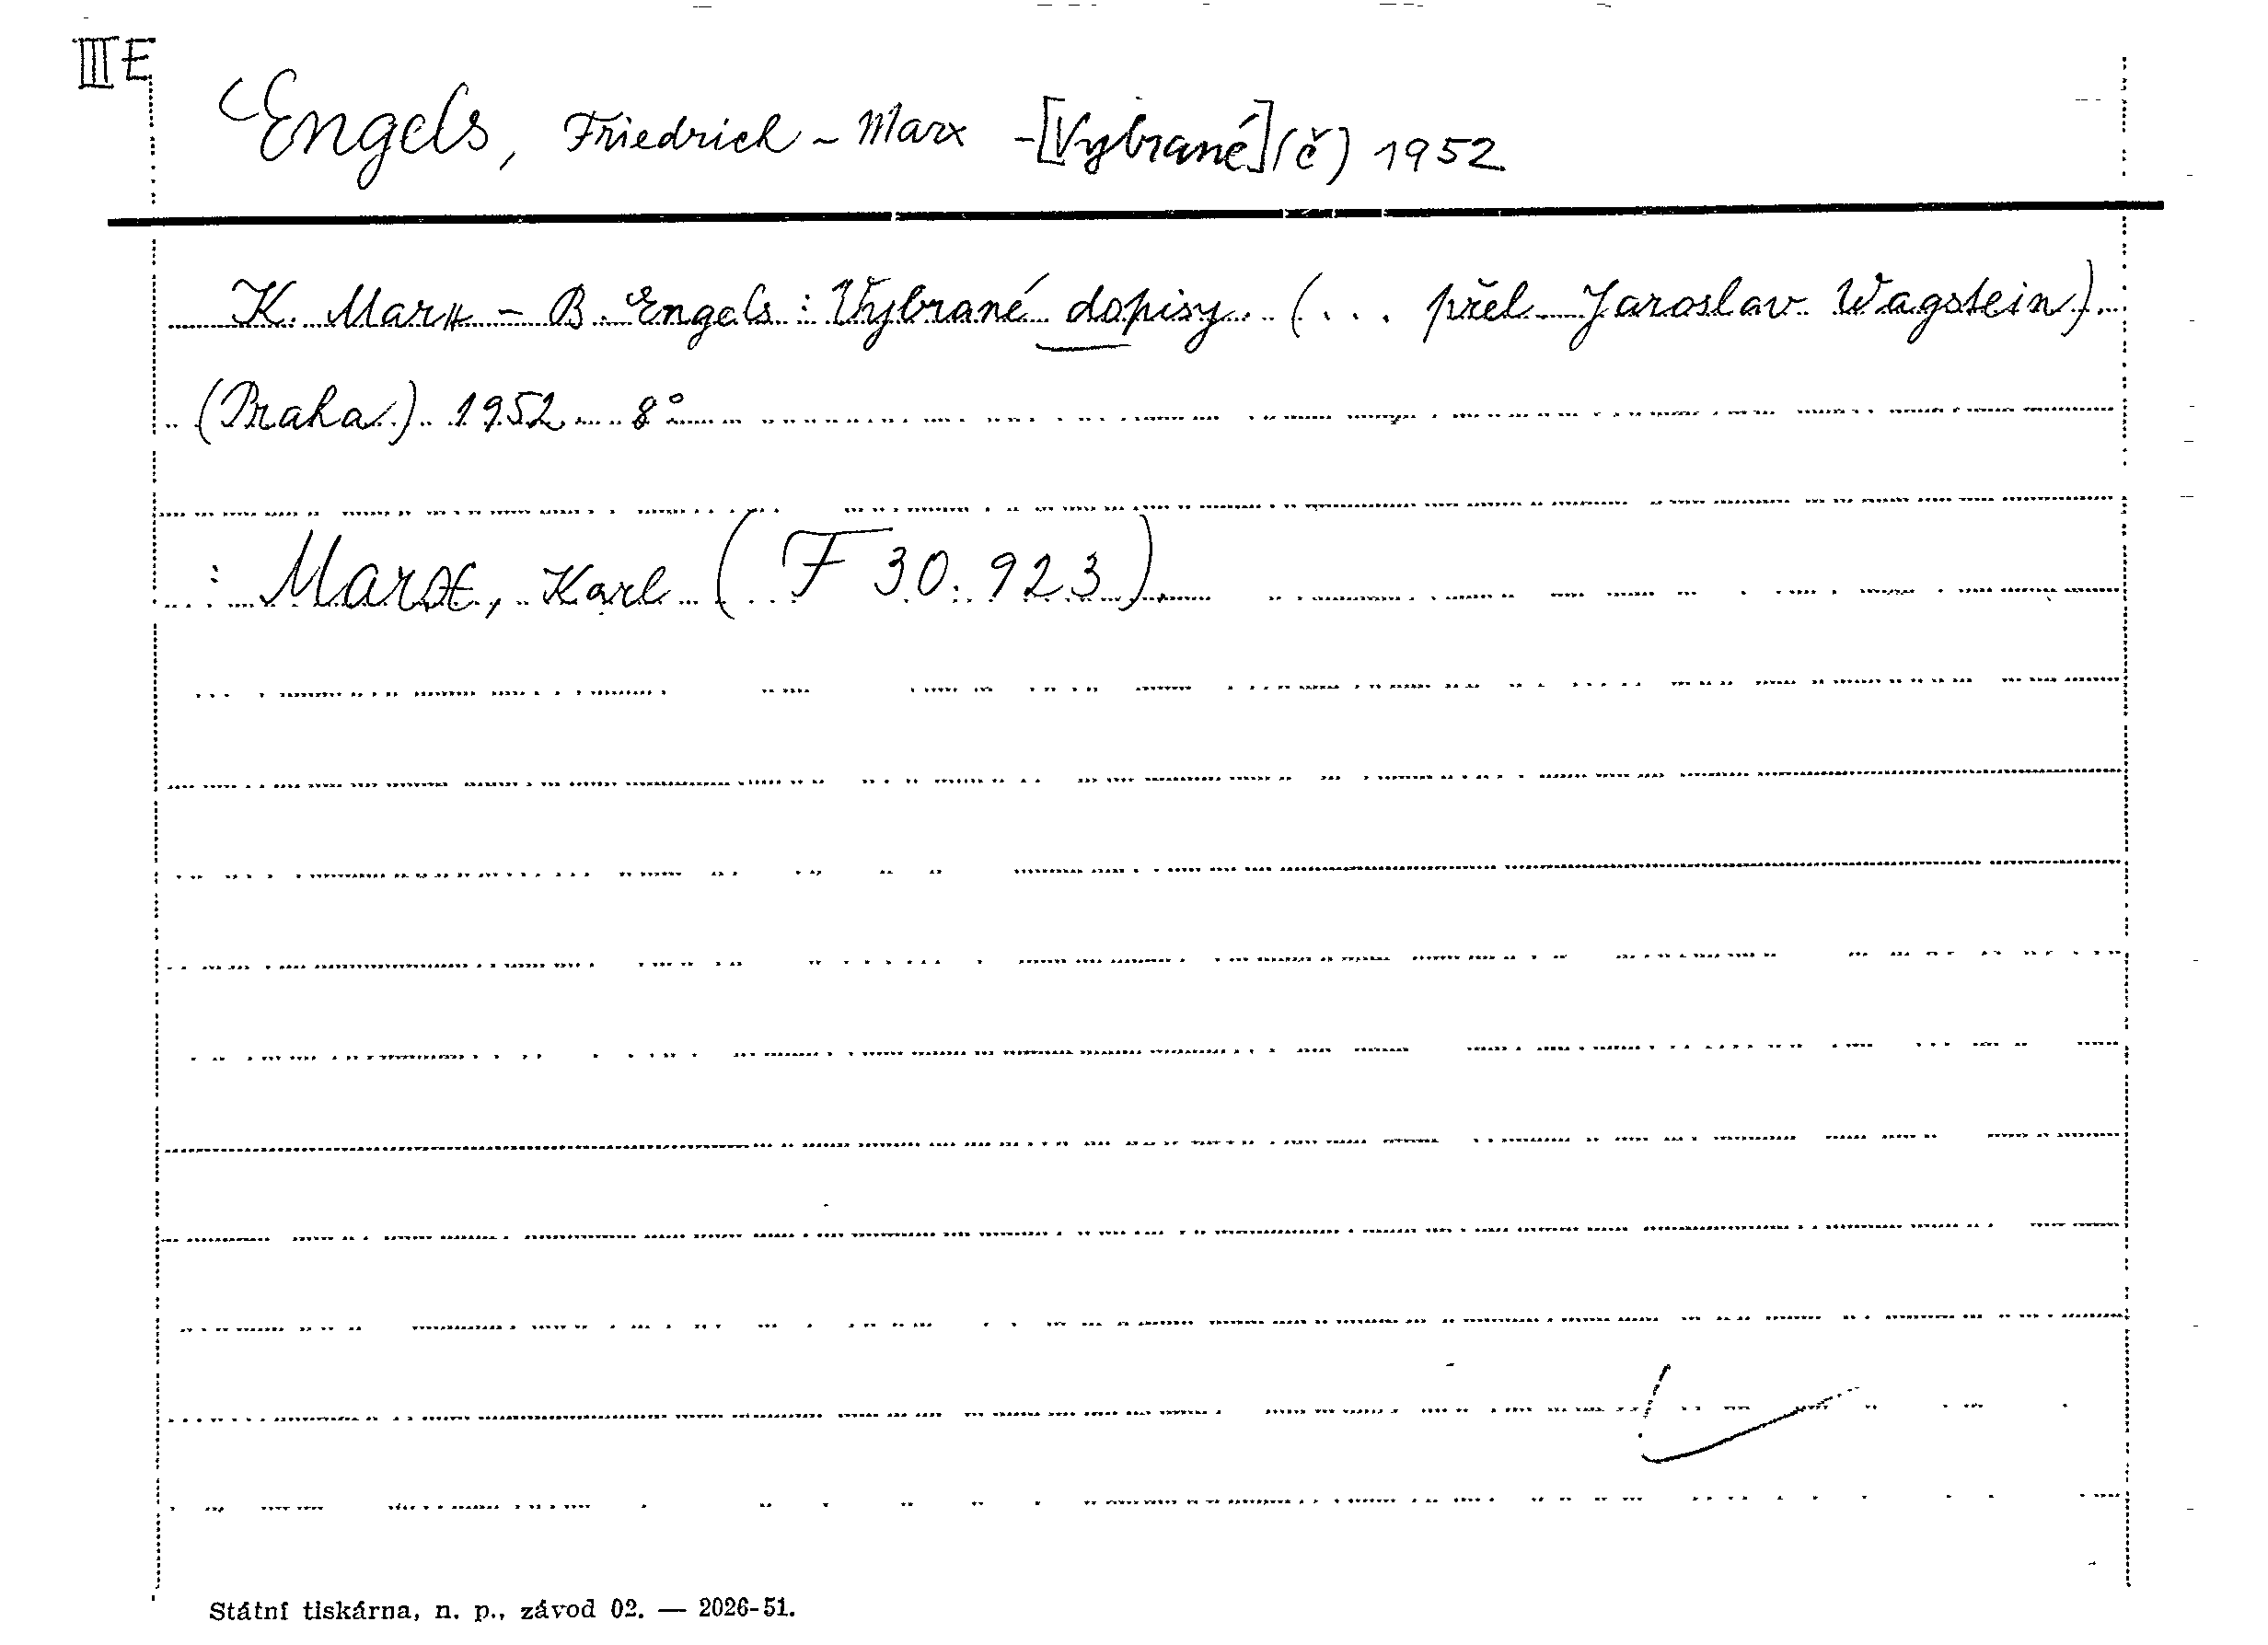 III E
Engels, Friedrich - Marx - [Vybrané] (č) 1952
K. Marx - B. Engels : Vybrané dopisy. (... přel. Jaroslav Wagstein).
(Praha) 1952 8°
: Marx, Karl (F 30.923)
Státní tiskárna, n. p., závod 02. — 2026-51.